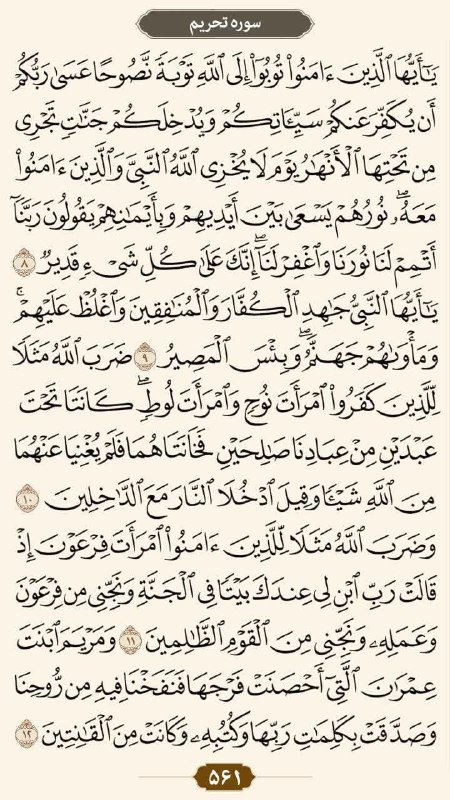 سوره تحریم
يَـٰٓأَيُّهَا ٱلَّذِينَ ءَامَنُوا۟ تُوبُوٓا۟ إِلَى ٱللَّهِ تَوْبَةً نَّصُوحًا عَسَىٰ رَبُّكُمْ
أَن يُكَفِّرَ عَنكُمْ سَيِّـَٔاتِكُمْ وَيُدْخِلَكُمْ جَنَّـٰتٍ تَجْرِى
مِن تَحْتِهَا ٱلْأَنْهَـٰرُ يَوْمَ لَا يُخْزِى ٱللَّهُ ٱلنَّبِىَّ وَٱلَّذِينَ ءَامَنُوا۟
مَعَهُۥ ۖ نُورُهُمْ يَسْعَىٰ بَيْنَ أَيْدِيهِمْ وَبِأَيْمَـٰنِهِمْ يَقُولُونَ رَبَّنَآ
أَتْمِمْ لَنَا نُورَنَا وَٱغْفِرْ لَنَآ ۖ إِنَّكَ عَلَىٰ كُلِّ شَىْءٍ قَدِيرٌ ٨
يَـٰٓأَيُّهَا ٱلنَّبِىُّ جَـٰهِدِ ٱلْكُفَّارَ وَٱلْمُنَـٰفِقِينَ وَٱغْلُظْ عَلَيْهِمْ ۚ
وَمَأْوَىٰهُمْ جَهَنَّمُ ۖ وَبِئْسَ ٱلْمَصِيرُ ٩ ضَرَبَ ٱللَّهُ مَثَلًا
لِّلَّذِينَ كَفَرُوا۟ ٱمْرَأَتَ نُوحٍ وَٱمْرَأَتَ لُوطٍ ۖ كَانَتَا تَحْتَ
عَبْدَيْنِ مِنْ عِبَادِنَا صَـٰلِحَيْنِ فَخَانَتَاهُمَا فَلَمْ يُغْنِيَا عَنْهُمَا
مِنَ ٱللَّهِ شَيْـًٔا وَقِيلَ ٱدْخُلَا ٱلنَّارَ مَعَ ٱلدَّٰخِلِينَ ١٠
وَضَرَبَ ٱللَّهُ مَثَلًا لِّلَّذِينَ ءَامَنُوا۟ ٱمْرَأَتَ فِرْعَوْنَ إِذْ
قَالَتْ رَبِّ ٱبْنِ لِى عِندَكَ بَيْتًا فِى ٱلْجَنَّةِ وَنَجِّنِى مِن فِرْعَوْنَ
وَعَمَلِهِۦ وَنَجِّنِى مِنَ ٱلْقَوْمِ ٱلظَّـٰلِمِينَ ١١ وَمَرْيَمَ ٱبْنَتَ
عِمْرَٰنَ ٱلَّتِىٓ أَحْصَنَتْ فَرْجَهَا فَنَفَخْنَا فِيهِ مِن رُّوحِنَا
وَصَدَّقَتْ بِكَلِمَـٰتِ رَبِّهَا وَكُتُبِهِۦ وَكَانَتْ مِنَ ٱلْقَـٰنِتِينَ ١٢
۵۶۱